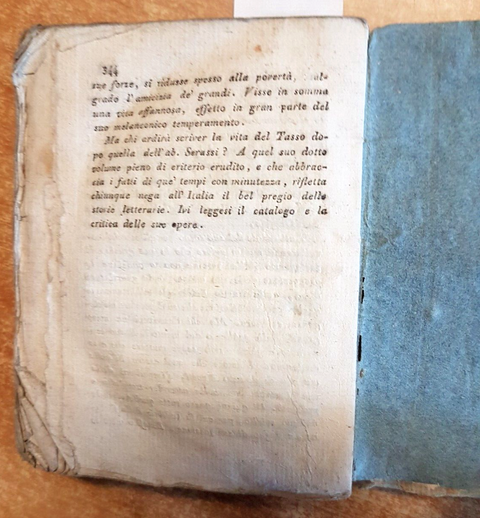 344
sue forze, si ridusse spesso alla povertà,
grado l'amicizia de' grandi. Visse in somma
una vita affannosa, effetto in gran parte del
suo melanconico temperamento.
Ma chi ardirà scriver la vita del Tasso do-
po quella dell'ab. Serassi? A quel suo dotto
volume pieno di criterio erudito, e che abbrac-
cia i fatti di que' tempi con minutezza, rifletta
chiunque nega all'Italia il bel pregio delle
storie letterarie. Ivi leggesi il catalogo e la
critica delle sue opere.